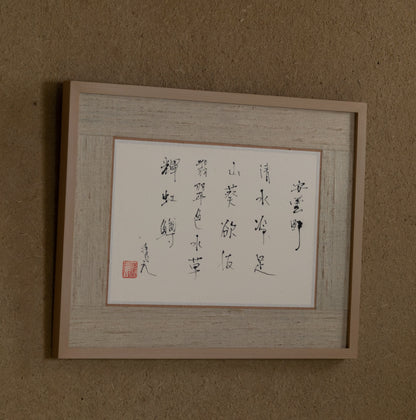 安曇野
清水冷足
山葵欲仮
翡翠色水草
輝虹鱒